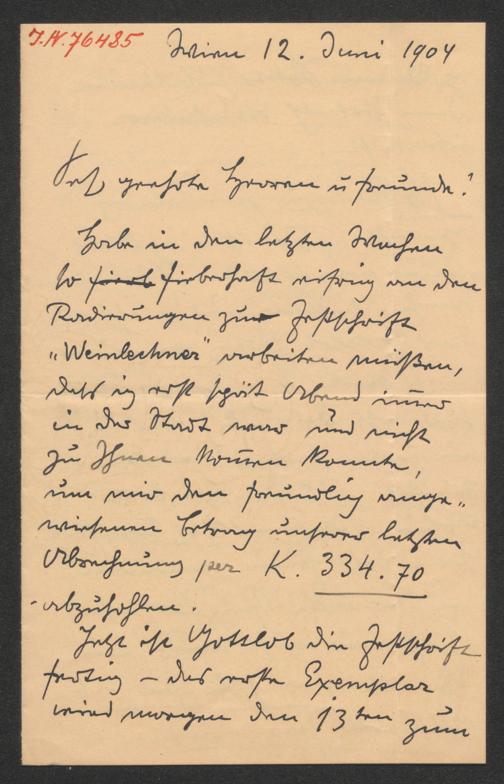 J.N. 76485
Wien 12. Juni 1904
Sehr geehrte Herren u Freunde!
Habe in den letzten Wochen
so fieberhaft eifrig an den
Radierungen zur Festschrift
„Weinlechner" arbeiten müßen,
daß ich erst spät Abend immer
in der Stadt war und nicht
zu Ihnen kommen konnte,
um mir den freundlich ange„
wiesenen Betrag unserer letzten
Abrechnung per K. 334.70
abzuhohlen.
Jetzt ist Gottlob die Festschrift
fertig – das erste Exemplar
wird morgen den 13ten zum